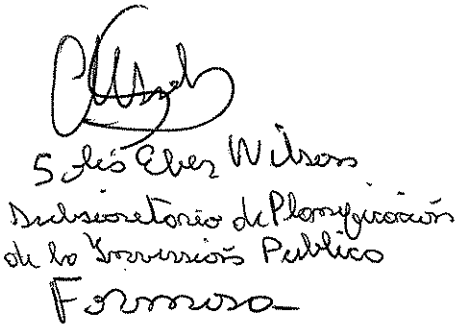 Solis Eber Wilson
Subsecretario de Planificación
de la Inversión Publica
Formosa